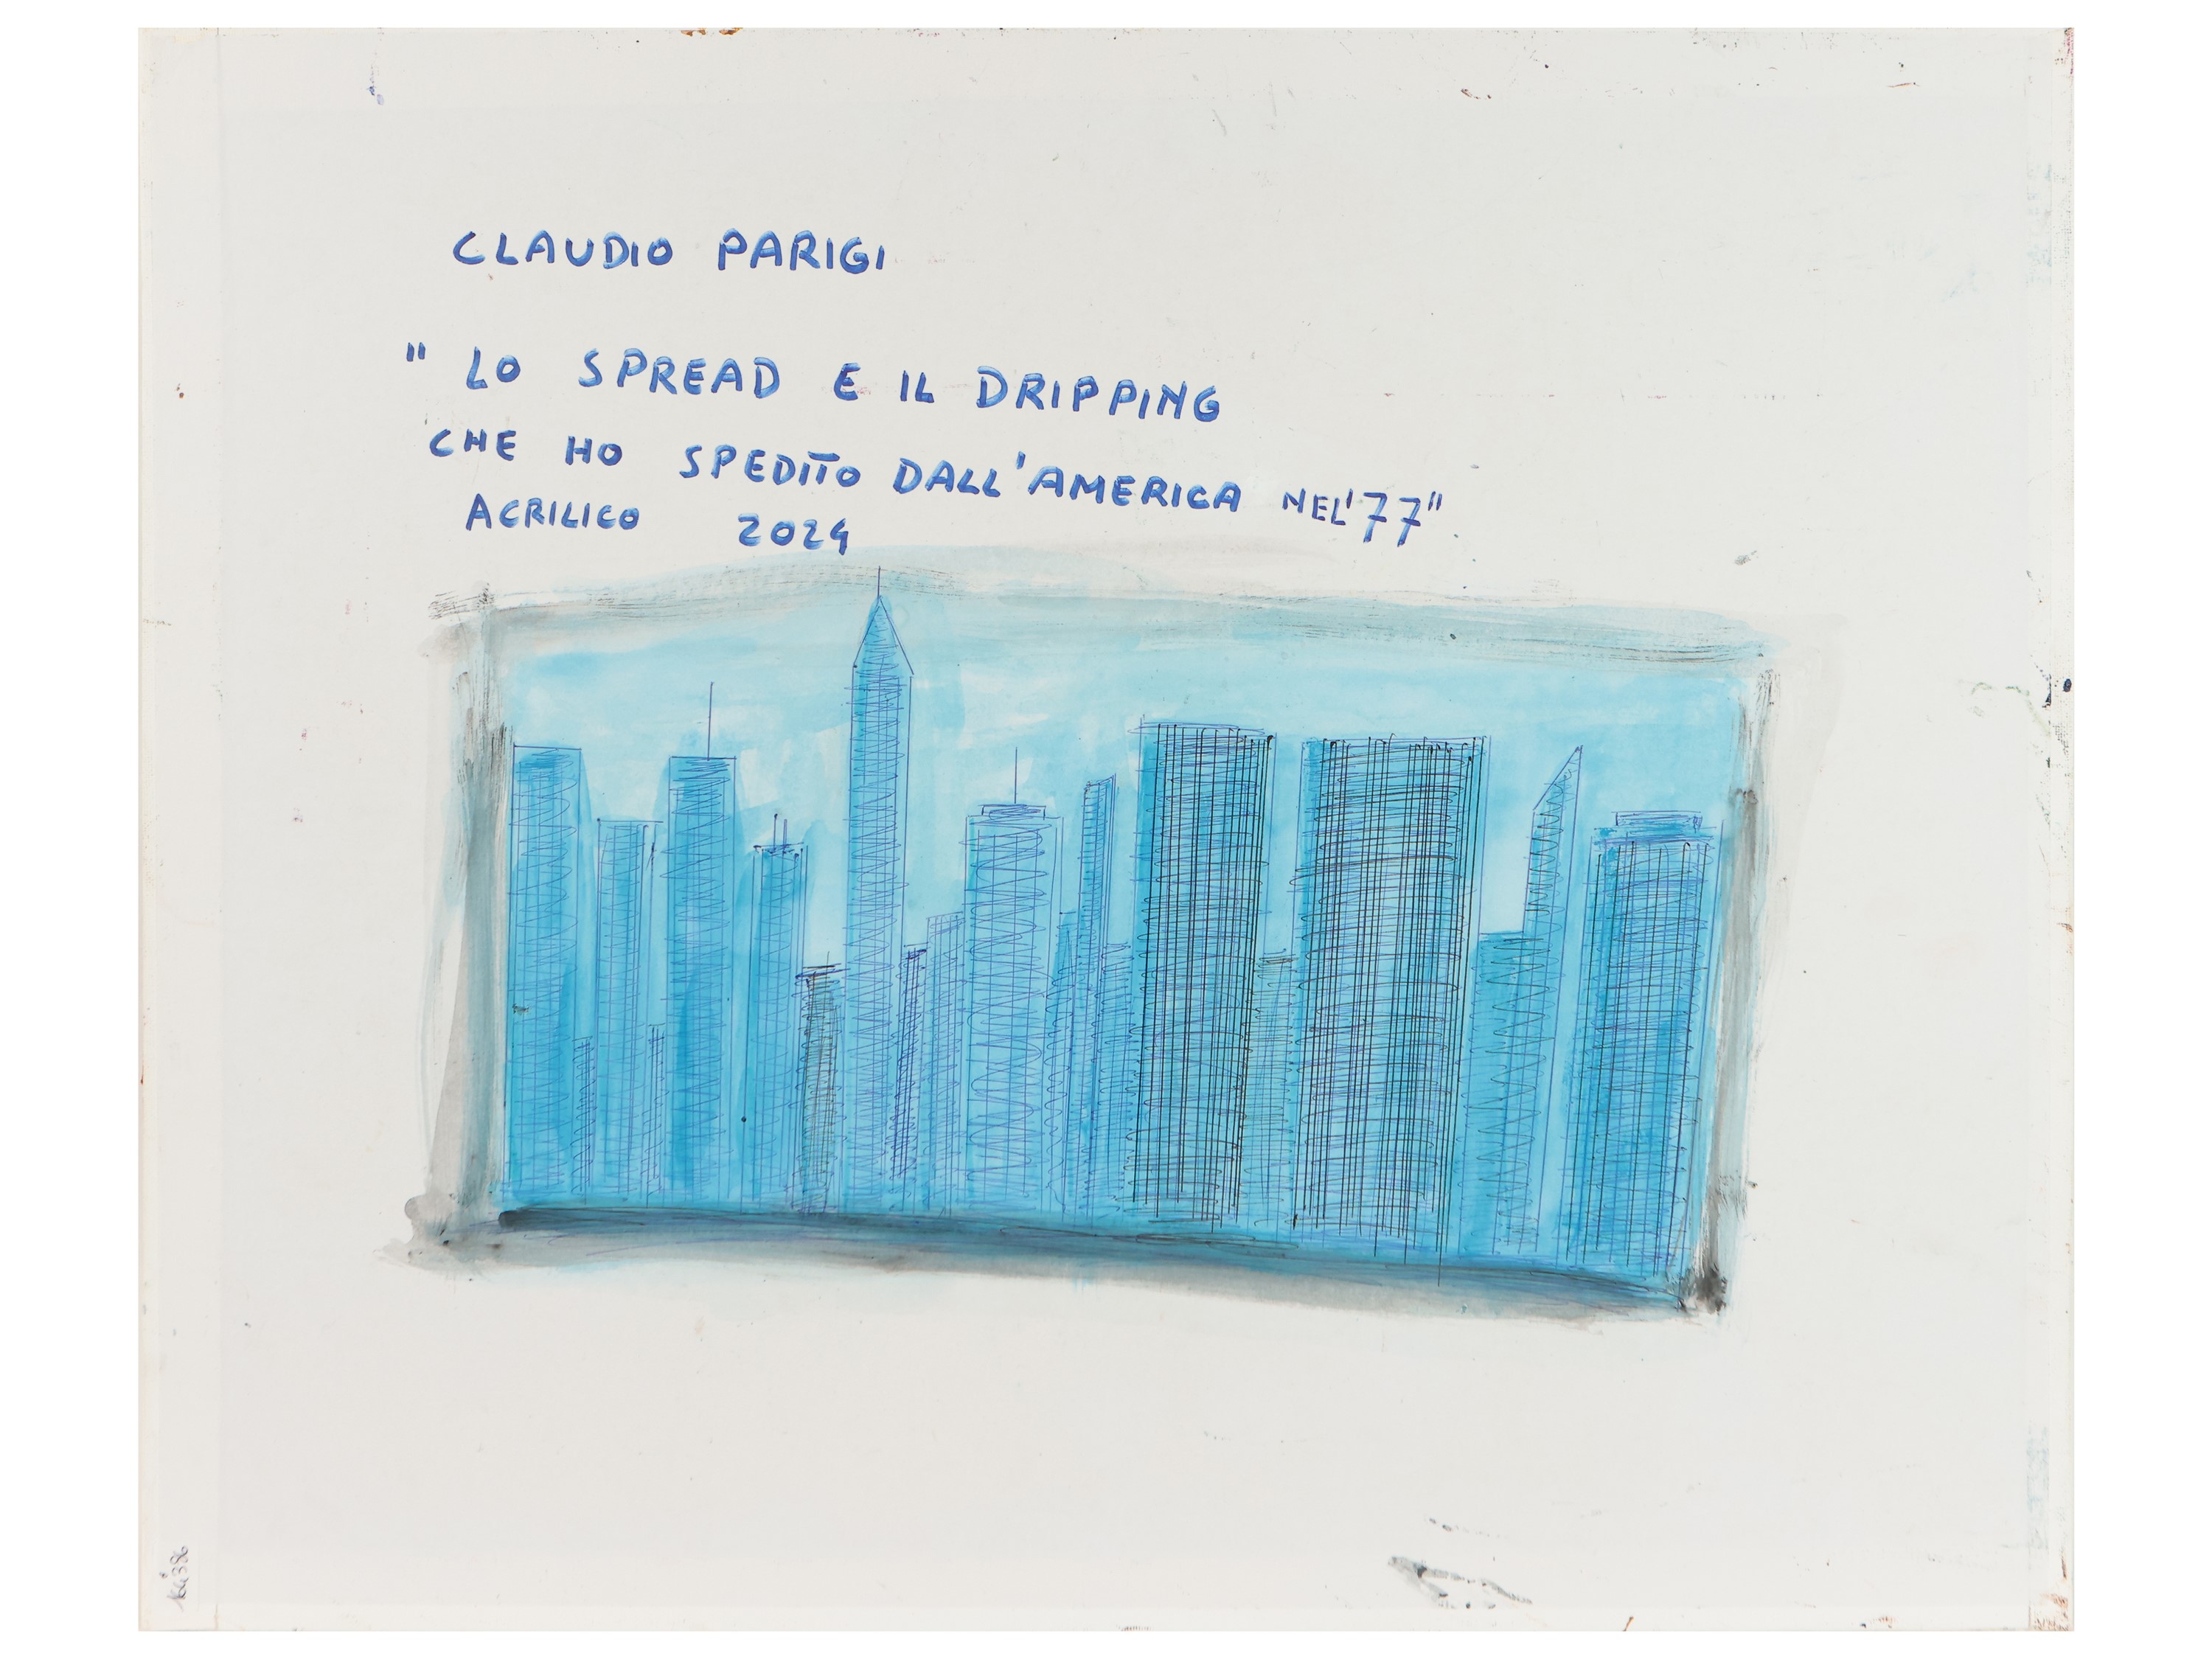 CLAUDIO PARIGI
" LO SPREAD E IL DRIPPING
CHE HO SPEDITO DALL'AMERICA NEL'77"
ACRILICO 2024